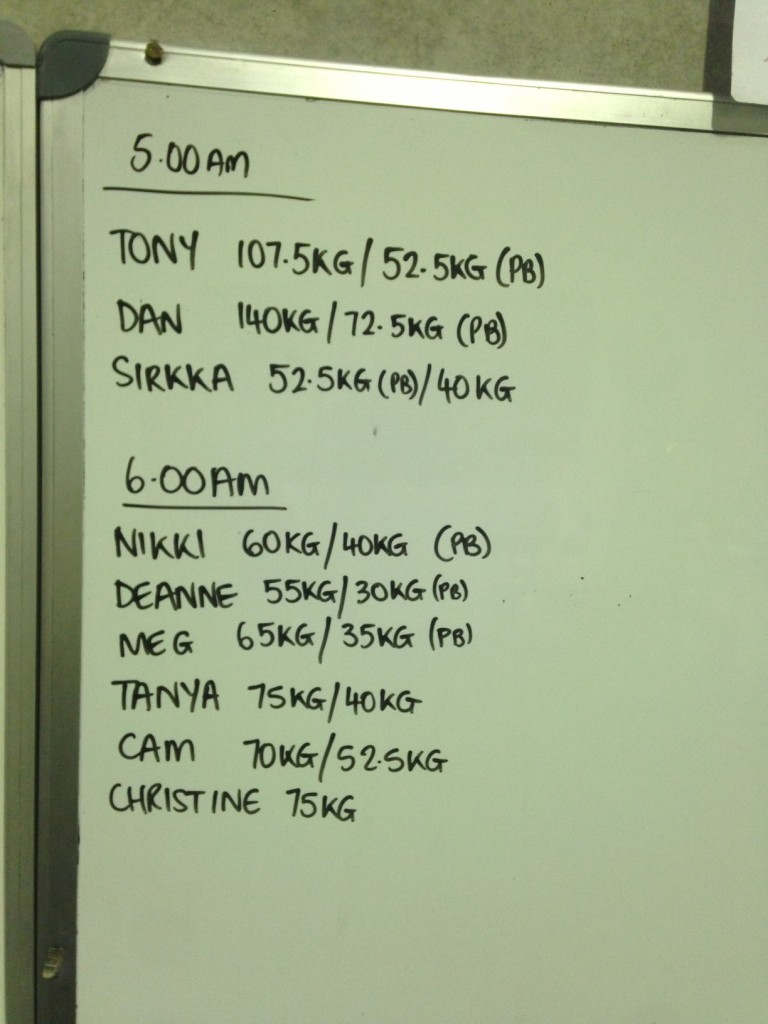 5.00AM
TONY 107.5KG/52.5KG (PB)
DAN 140KG/72.5KG (PB)
SIRKKA 52.5KG (PB)/40KG
6.00AM
NIKKI 60KG/40KG (PB)
DEANNE 55KG/30KG (PB)
MEG 65KG/35KG (PB)
TANYA 75KG/40KG
CAM 70KG/52.5KG
CHRISTINE 75KG